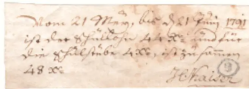 Vom 21 Maÿ, bis d 21 Junÿ 1791
ist der Schullohn 44 Xr und für
die Schulstube 4 Xr, ist zusammen
48 Xr